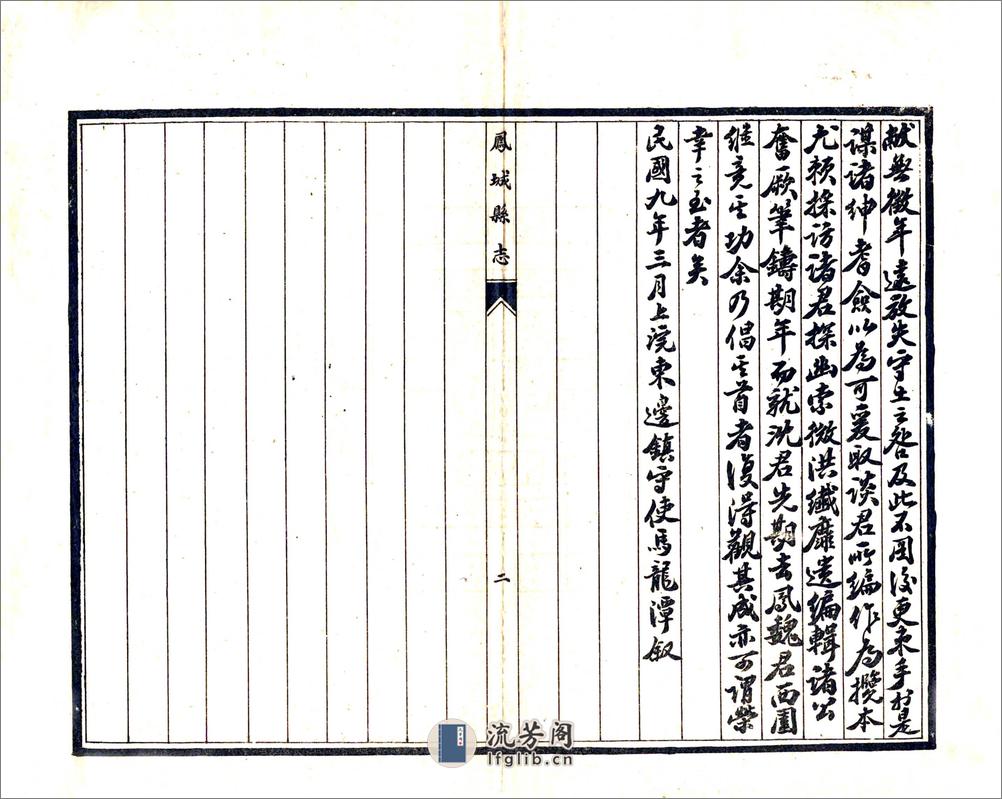 獻無徵年遠放失守土之咎及此不圖後更束手於是
謀諸紳耆僉以為可爰取談君所編作為攬本
尤賴採訪諸君探幽索微洪纖靡遺編輯諸公
奮厥筆鑄期年而就沈君先期去鳳魏君西園
繼竟其功余乃倡其首者復得觀其成亦可謂榮
幸之至者矣
民國九年三月上浣東邊鎮守使馬龍潭敘
鳳城縣志
二
流芳阁
lfglib.cn